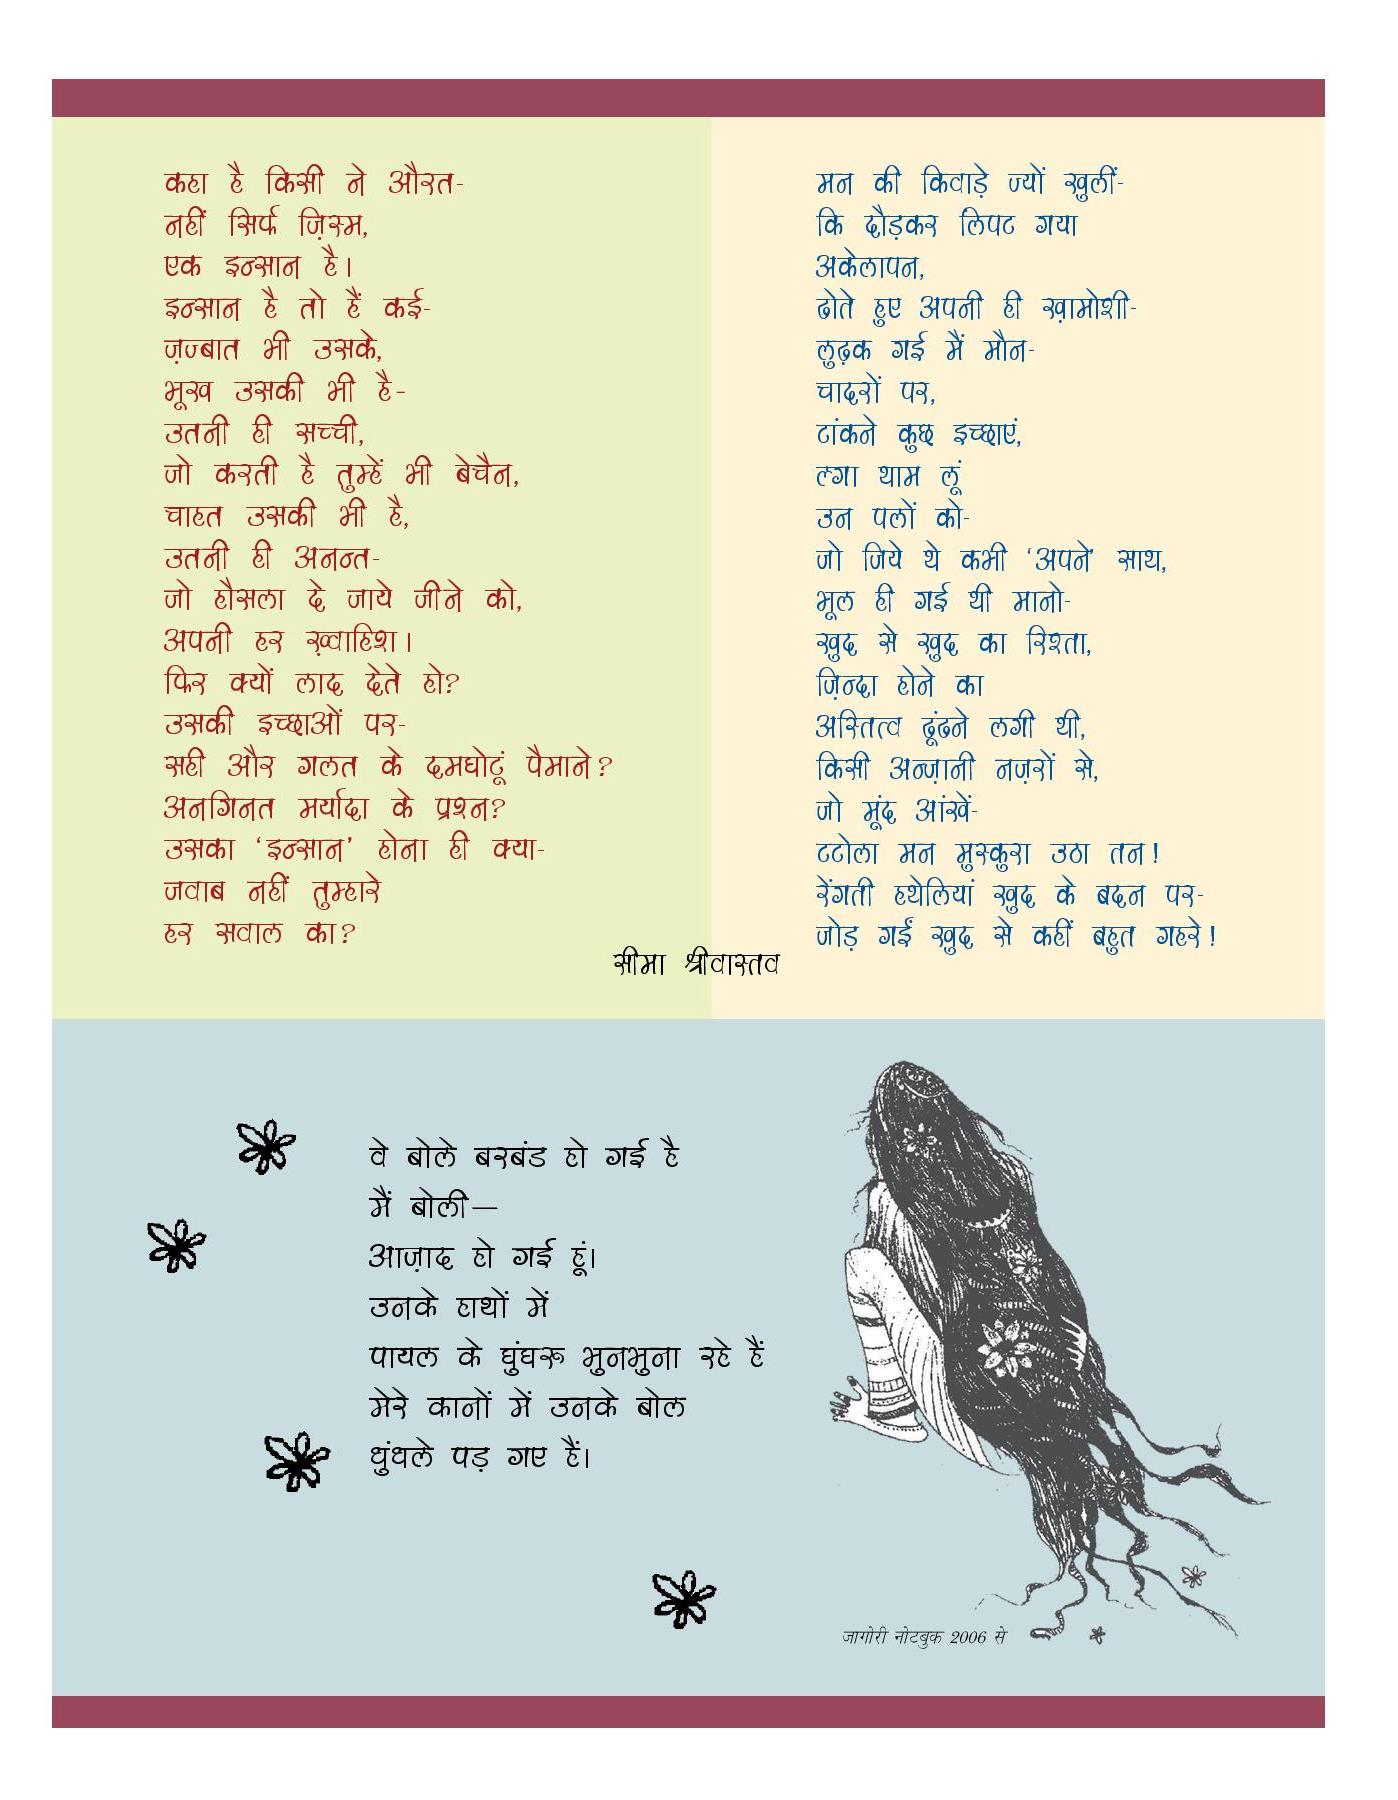 कहा है किसी ने औरत-
नहीं सिर्फ ज़िस्म,
एक इन्सान है।
इन्सान है तो हैं कई-
ज़ज्बात भी उसके,
भूख उसकी भी है-
उतनी ही सच्ची,
जो करती है तुम्हें भी बेचैन,
चाहत उसकी भी है,
उतनी ही अनन्त-
जो हौसला दे जाये जीने को,
अपनी हर ख़्वाहिश।
फिर क्यों लाद देते हो?
उसकी इच्छाओं पर-
सही और गलत के दमघोटूं पैमाने?
अनगिनत मर्यादा के प्रश्न?
उसका ‘इन्सान’ होना ही क्या-
जवाब नहीं तुम्हारे
हर सवाल का?
मन की किवाड़े ज्यों खुलीं-
कि दौड़कर लिपट गया
अकेलापन,
ढोते हुए अपनी ही ख़ामोशी-
लुढ़क गई मैं मौन-
चादरों पर,
टांकने कुछ इच्छाएं,
ल्गा थाम लूं
उन पलों को-
जो जिये थे कभी ‘अपने’ साथ,
भूल ही गई थी मानो-
खुद से खुद का रिश्ता,
ज़िन्दा होने का
अस्तित्व ढूंढने लगी थी,
किसी अन्ज़ानी नज़रों से,
जो मूंद आंखें-
टटोला मन मुस्कुरा उठा तन!
रेंगती हथेलियां खुद के बदन पर-
जोड़ गईं खुद से कहीं बहुत गहरे!
सीमा श्रीवास्तव
वे बोले बरबंड हो गई है
मैं बोली—
आज़ाद हो गई हूं।
उनके हाथों में
पायल के घुंघरू भुनभुना रहे हैं
मेरे कानों में उनके बोल
धुंधले पड़ गए हैं।
जागोरी नोटबुक 2006 से